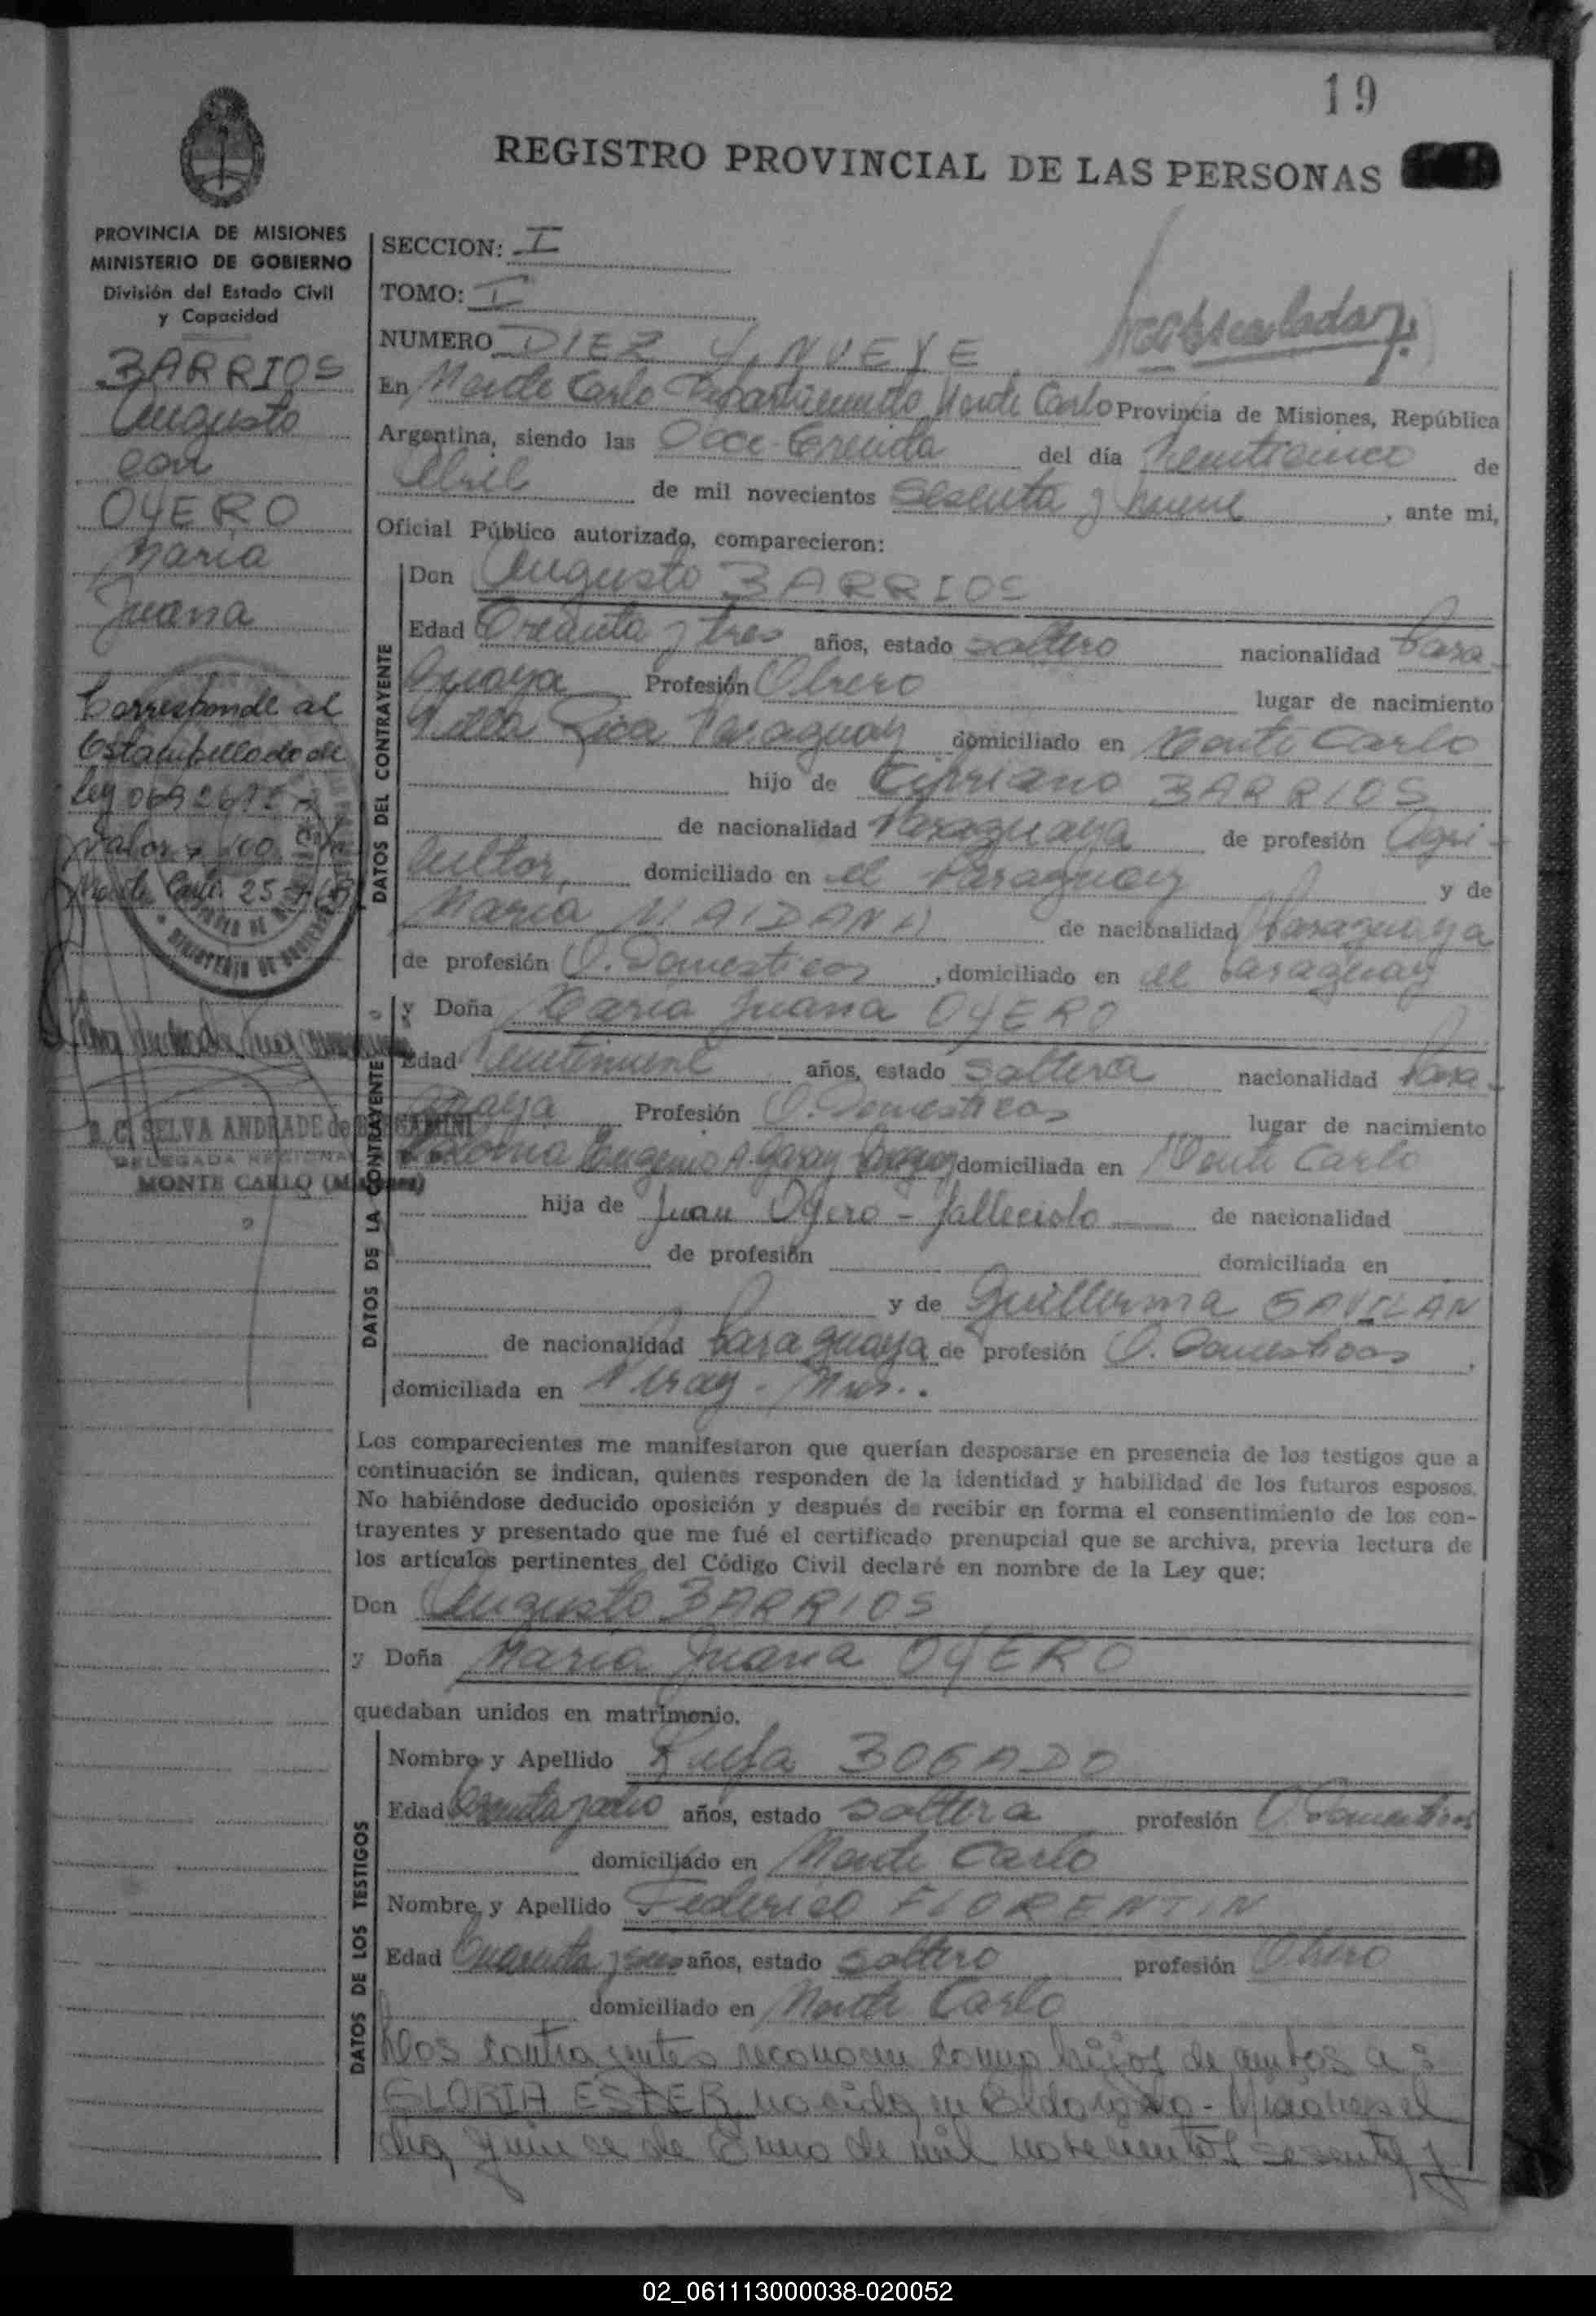 19
REGISTRO PROVINCIAL DE LAS PERSONAS
PROVINCIA DE MISIONES
MINISTERIO DE GOBIERNO
División del Estado Civil
y Capacidad
BARRIOS
Augusto
con
OYERO
María
Juana
Corresponde al
Estampillado de
Ley
valor $ 100
Monte Carlo 25
SELVA ANDRADE de
DELEGADA
MONTE CARLO
SECCION: I
TOMO: I
NUMERO DIEZ Y NUEVE
En Monte Carlo Departamento Monte Carlo Provincia de Misiones, República
Argentina, siendo las Once Treinta del día Veinticinco de
Abril de mil novecientos Sesenta y nueve, ante mi,
Oficial Público autorizado, comparecieron:
DATOS DEL CONTRAYENTE
Don Augusto BARRIOS
Edad Treinta y tres años, estado soltero nacionalidad Para-
guaya Profesión Obrero lugar de nacimiento
Villa Rica Paraguay domiciliado en Monte Carlo
hijo de Cipriano BARRIOS
de nacionalidad Paraguaya de profesión Agri-
cultor, domiciliado en el Paraguay y de
María MAIDANA de nacionalidad Paraguaya
de profesión Q. Domesticos, domiciliado en el Paraguay
DATOS DE LA CONTRAYENTE
y Doña María Juana OYERO
Edad Veintinueve años, estado soltera nacionalidad Para-
guaya Profesión Q. Domesticos lugar de nacimiento
Colonia Eugenio A. Garay domiciliada en Monte Carlo
hija de Juan Oyero - fallecido de nacionalidad
de profesión domiciliada en
y de Guillerma GAVILAN
de nacionalidad Paraguaya de profesión Q. Domesticos,
domiciliada en
Los comparecientes me manifestaron que querían desposarse en presencia de los testigos que a
continuación se indican, quienes responden de la identidad y habilidad de los futuros esposos.
No habiéndose deducido oposición y después de recibir en forma el consentimiento de los con-
trayentes y presentado que me fué el certificado prenupcial que se archiva, previa lectura de
los artículos pertinentes del Código Civil declaré en nombre de la Ley que:
Don Augusto BARRIOS
y Doña María Juana OYERO
quedaban unidos en matrimonio.
DATOS DE LOS TESTIGOS
Nombre y Apellido Rufa BOGADO
Edad años, estado soltera profesión Q. Domesticos
domiciliado en Monte Carlo
Nombre y Apellido Federico FLORENTIN
Edad Cuarenta y seis años, estado soltero profesión Obrero
domiciliado en Monte Carlo
Los contrayentes reconocen como hijos de ambos a:
GLORIA ESTER nacida en Eldorado - Misiones el
día quince de Enero de mil novecientos sesenta y
02_061113000038-020052